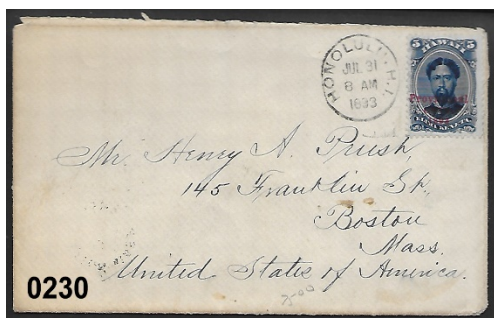 HONOLULU. H.I.
JUL 31
8 AM
1893
5 HAWAII 5
Provisional
Mr. Henry A. Rush,
145 Franklin St.,
Boston
Mass.
United States of America.
0230